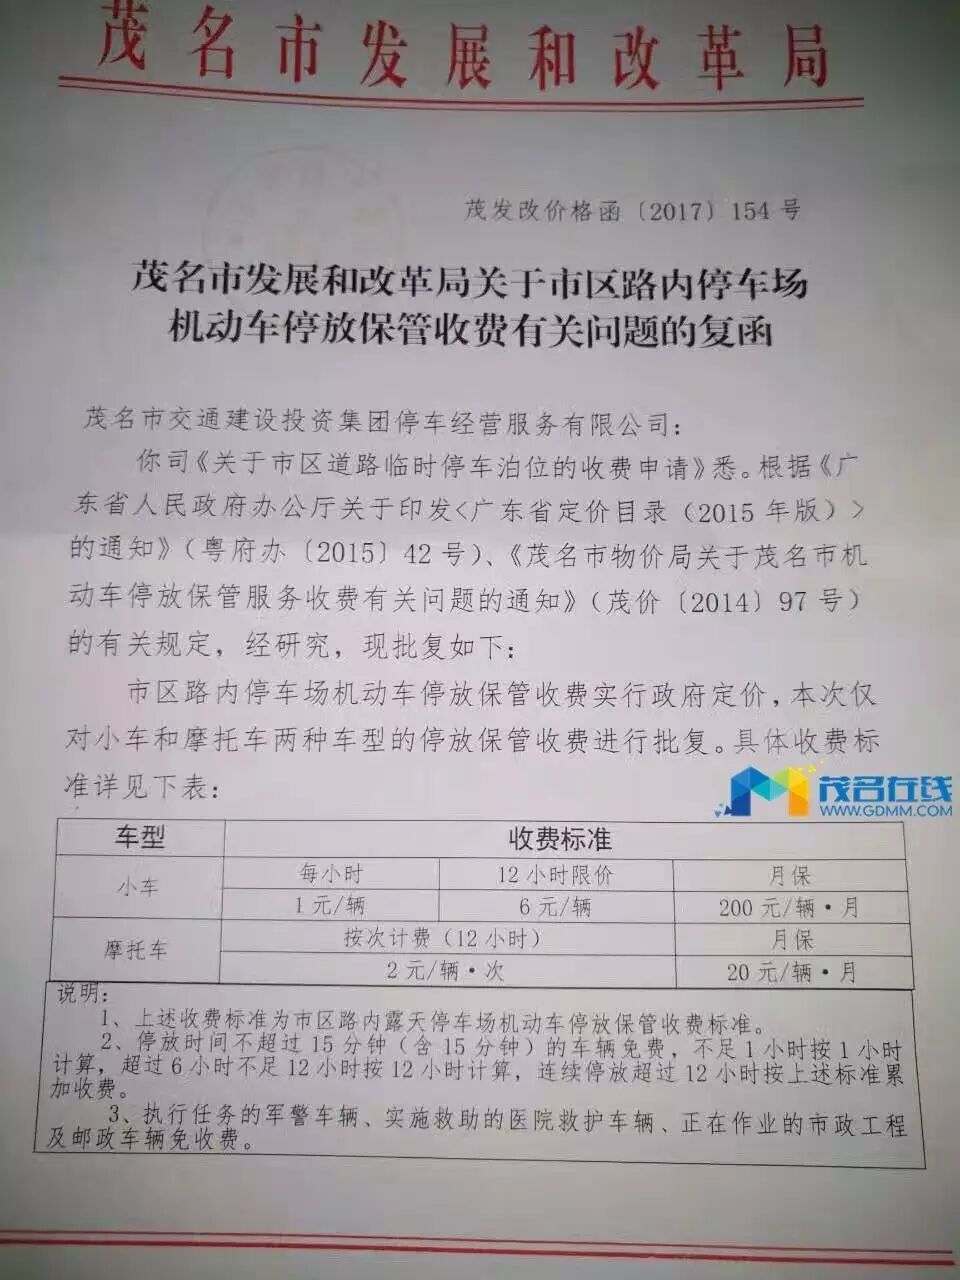 茂名市发展和改革局
茂发改价格函〔2017〕154号
茂名市发展和改革局关于市区路内停车场
机动车停放保管收费有关问题的复函
茂名市交通建设投资集团停车经营服务有限公司：
你司《关于市区道路临时停车泊位的收费申请》悉。根据《广
东省人民政府办公厅关于印发<广东省定价目录（2015年版）>
的通知》（粤府办〔2015〕42号）、《茂名市物价局关于茂名市机
动车停放保管服务收费有关问题的通知》（茂价〔2014〕97号）
的有关规定，经研究，现批复如下：
市区路内停车场机动车停放保管收费实行政府定价，本次仅
对小车和摩托车两种车型的停放保管收费进行批复。具体收费标
准详见下表：
茂名在线
WWW.GDMM.COM
车型 收费标准
小车 每小时 12小时限价 月保
1元/辆 6元/辆 200元/辆·月
摩托车 按次计费（12小时） 月保
2元/辆·次 20元/辆·月
说明：
1、上述收费标准为市区路内露天停车场机动车停放保管收费标准。
2、停放时间不超过15分钟（含15分钟）的车辆免费，不足1小时按1小时
计算，超过6小时不足12小时按12小时计算，连续停放超过12小时按上述标准累
加收费。
3、执行任务的军警车辆、实施救助的医院救护车辆、正在作业的市政工程
及邮政车辆免收费。